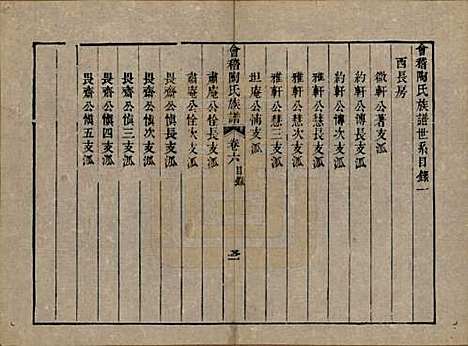 會稽陶氏族譜世系目錄一
西長房
徵軒公著支派
約軒公傅長支派
約軒公傅次支派
雅軒公慧長支派
雅軒公慧次支派
雅軒公慧三支派
坦庵公備支派
會稽陶氏族譜 卷六目錄
肅庵公佺長支派
肅庵公佺次支派
畏齋公愼長支派
畏齋公愼次支派
畏齋公愼三支派
畏齋公愼四支派
畏齋公愼五支派